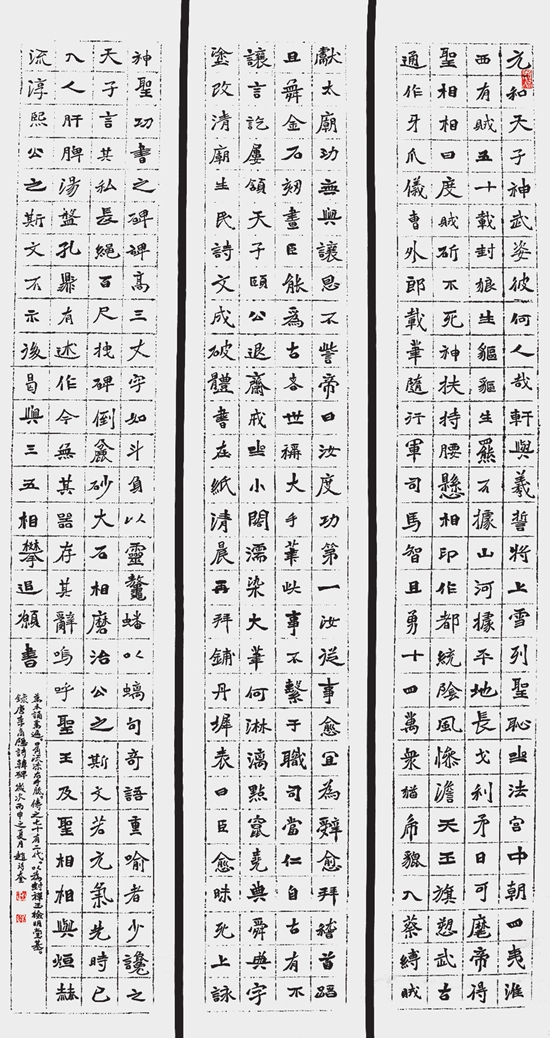 元和天子神武姿彼何人哉軒與羲誓將上雪列聖恥坐法宮中朝四夷淮
西有賊五十載封狼生貙貙生羆不據山河據平地長戈利矛日可麾帝得
聖相相曰度賊斫不死神扶持腰懸相印作都統陰風慘澹天王旗愬武古
通作牙爪儀曹外郎載筆隨行軍司馬智且勇十四萬衆猶虎貔入蔡縛賊
獻太廟功無與讓恩不訾帝曰汝度功第一汝從事愈宜為辭愈拜稽首蹈
且舞金石刻畫臣能為古者世稱大手筆此事不繫于職司當仁自古有不
讓言訖屢頷天子頤公退齋戒坐小閤濡染大筆何淋漓點竄堯典舜典字
塗改清廟生民詩文成破體書在紙清晨再拜鋪丹墀表曰臣愈昧死上詠
神聖功書之碑碑高三丈字如斗負以靈鼇蟠以螭句奇語重喻者少讒之
天子言其私長繩百尺拽碑倒麤砂大石相磨治公之斯文若元氣先時已
入人肝脾湯盤孔鼎有述作今無其器存其辭嗚呼聖王及聖相相與烜赫
流淳熙公之斯文不示後曷與三五相攀追願書
萬本誦萬過口角流沫右手胝傳之七十有二代以為封禪玉檢明堂基
錄唐李商隱詩韓碑歲次丙申之夏月趙